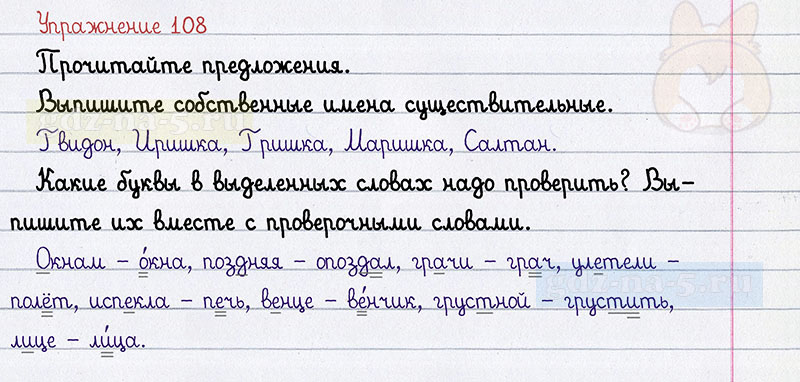 Упражнение 108
Прочитайте предложения.
Выпишите собственные имена существительные.
gdz-na-5.ru
Гвидон, Иришка, Гришка, Маришка, Салтан.
Какие буквы в выделенных словах надо проверить? Вы-
пишите их вместе с проверочными словами.
Окнам – о́кна, поздняя – опоздал, грачи – грач, улетели –
gdz-na-5.ru
полёт, испекла – печь, венце – ве́нчик, грустной – грустить,
лице – ли́ца.